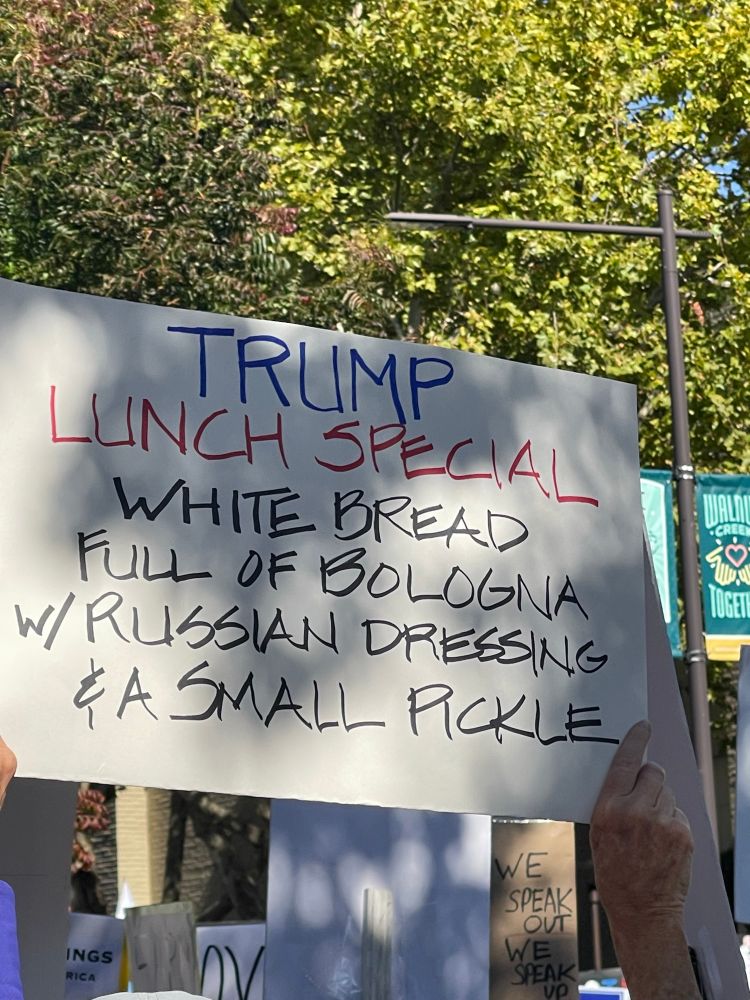 TRUMP
LUNCH SPECIAL
WHITE BREAD
FULL OF BOLOGNA
W/ RUSSIAN DRESSING
& A SMALL PICKLE
CREEK
WE
SPEAK
OUT
WE
SPEAK
UP